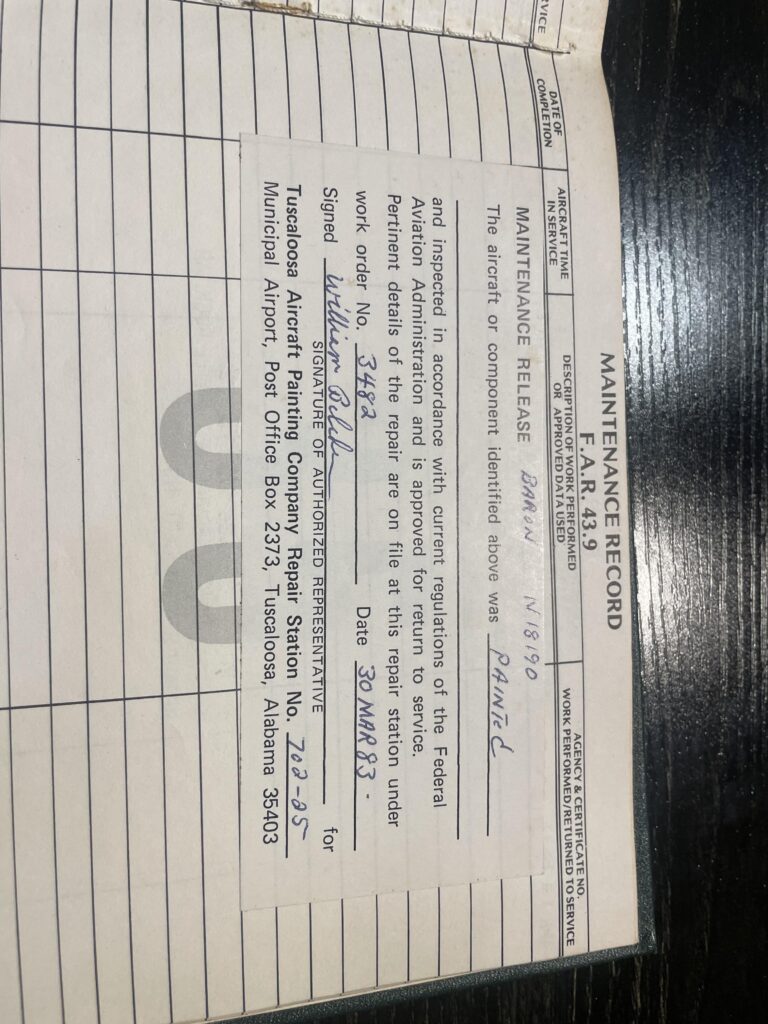 VICE
MAINTENANCE RECORD
F.A.R. 43.9
DATE OF
COMPLETION
AIRCRAFT TIME
IN SERVICE
DESCRIPTION OF WORK PERFORMED
OR APPROVED DATA USED
AGENCY & CERTIFICATE NO.
WORK PERFORMED/RETURNED TO SERVICE
MAINTENANCE RELEASE BARON N18190
The aircraft or component identified above was PAINTED
and inspected in accordance with current regulations of the Federal
Aviation Administration and is approved for return to service.
Pertinent details of the repair are on file at this repair station under
work order No. 3482 Date 30 MAR 83.
Signed William for
SIGNATURE OF AUTHORIZED REPRESENTATIVE
Tuscaloosa Aircraft Painting Company Repair Station No. 702-25
Municipal Airport, Post Office Box 2373, Tuscaloosa, Alabama 35403